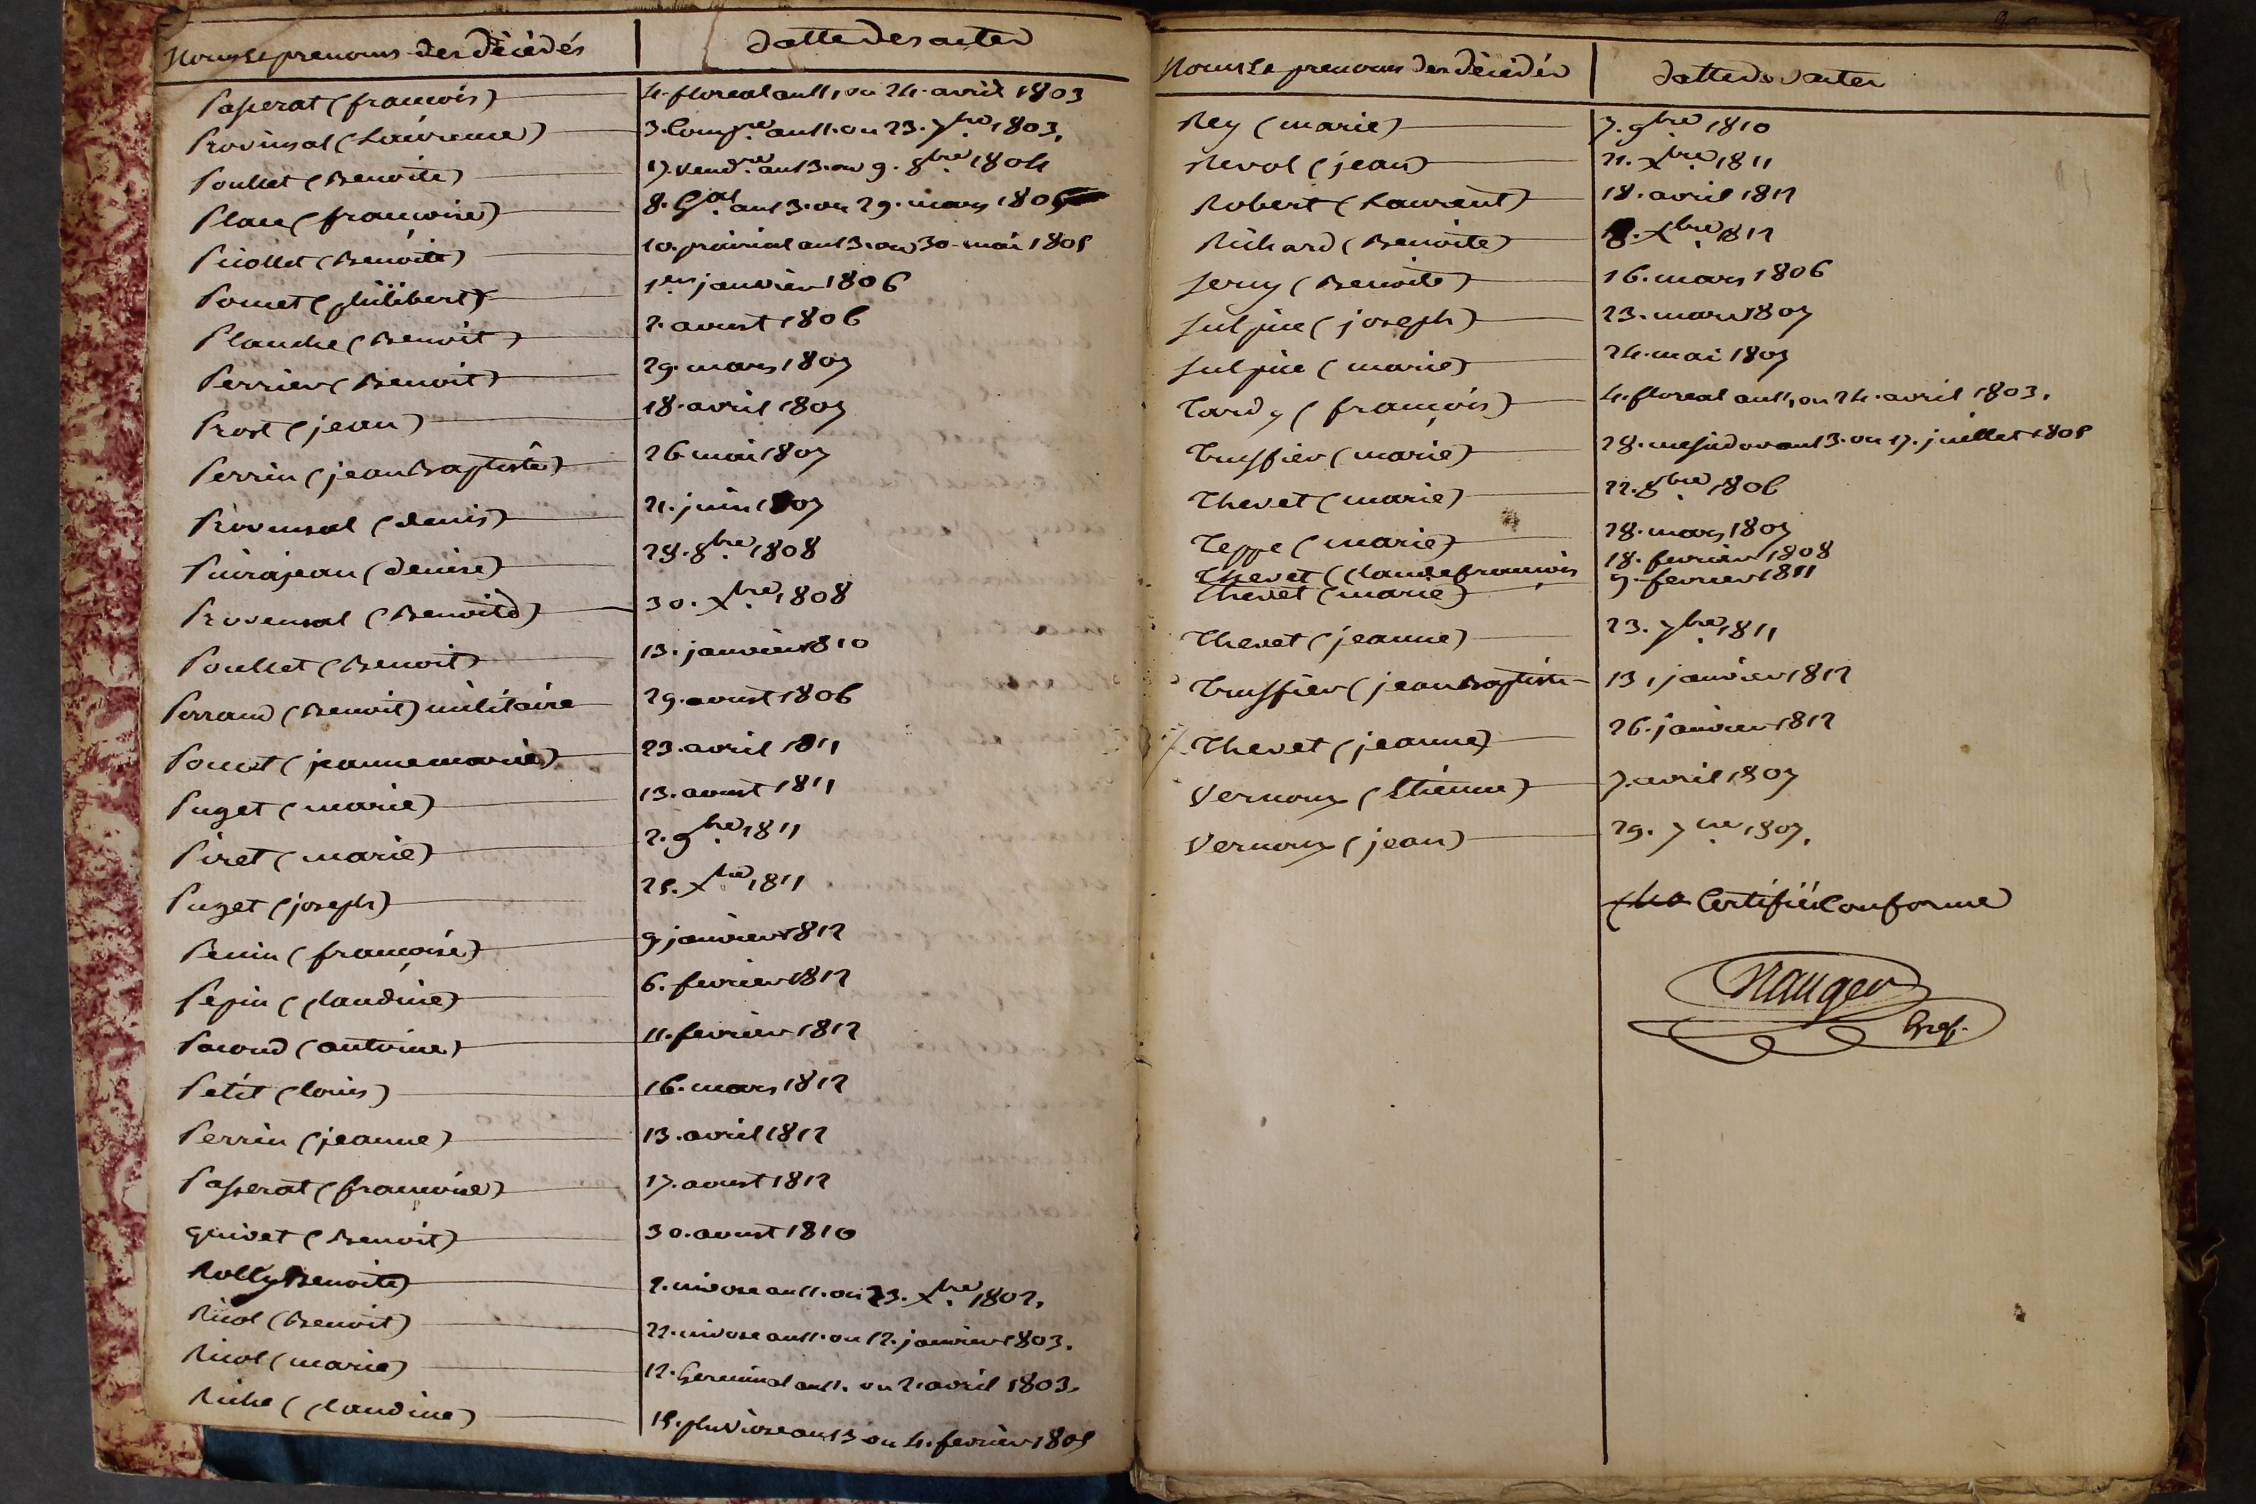 Noms et prenoms des décédés
datte des actes
Passerat (françois) 4. floreal an 11, ou 24. avril 1803
Provinsal (Laurence) 3. Compre. an 11. ou 23. 7bre. 1803,
Poullet (Benoite) 17. vendre. an 13. ou 9. 8bre. 1804
Place (françoise) 8. Gal. an 13. ou 29. mars 1805
Picollet (Benoite) 10. prairial an 13. ou 30 mai 1805
Pomet (philibert) 1er janvier 1806
Planche (Benoit) 2. aoust 1806
Perrier (Benoit) 29. mars 1807
Prost (jean) 18. avril 1807
Perrin (jean Baptiste) 26 mai 1807
Provensal (denis) 21. juin 1807
Puirajean (denise) 28. 8bre. 1808
Provensal (Benoite) 30. Xbre. 1808
Poullet (Benoit) 13. janvier 1810
Perraud (Benoit) militaire 29. aoust 1806
Pomet (jeanne marie) 23. avril 1811
Puget (marie) 13. aoust 1811
Piret (marie) 2. 9bre. 1811
Puget (joseph) 25. Xbre. 1811
Penin (françoise) 9 janvier 1812
Pepin (claudine) 6. fevrier 1812
Pacoud (antoine) 11. fevrier 1812
Petit (louis) 16. mars 1812
Perrin (jeanne) 13. avril 1812
Passerat (françoise) 17. aoust 1812
quivet (Benoit) 30. aoust 1810
Rolly Benoite) 2. nivose an 11. ou 23. Xbre. 1802,
Ricol (Benoit) 22. nivose an 11. ou 12. janvier 1803.
Ricol (marie) 12. Germinal an 11. ou 2 avril 1803,
Riche (claudine) 15. pluviose an 13 ou 4. fevrier 1805
Noms et prenoms des décédés
datte des actes
Rey (marie) 7. 9bre. 1810
Revol (jean) 21. Xbre. 1811
Robert (Laurent) 18. avril 1812
Richard (Benoite) 8. Xbre. 1812
Serny (Benoite) 16. mars 1806
Sulpice (joseph) 23. mars 1807
Sulpice (marie) 24. mai 1807
Tardy (françois) 4. floreal an 11, ou 24. avril 1803,
Truffier (marie) 28. messidor an 13. ou 17. juillet 1805
Thevet (marie) 22. 8bre. 1806
Teppe (marie) 28. mars 1807
Thevet (claude françois 18. fevrier 1808
Thevet (marie) 9. fevrier 1811
Thevet (jeanne) 23. 7bre. 1811
Truffier (jean Baptiste 13, janvier 1812
Thevet (jeanne) 26. janvier 1812
Vernoux (Etienne) 7. avril 1807
Vernoux (jean) 29. 7bre. 1807.
Certifié Conforme
Nauger
Gref.